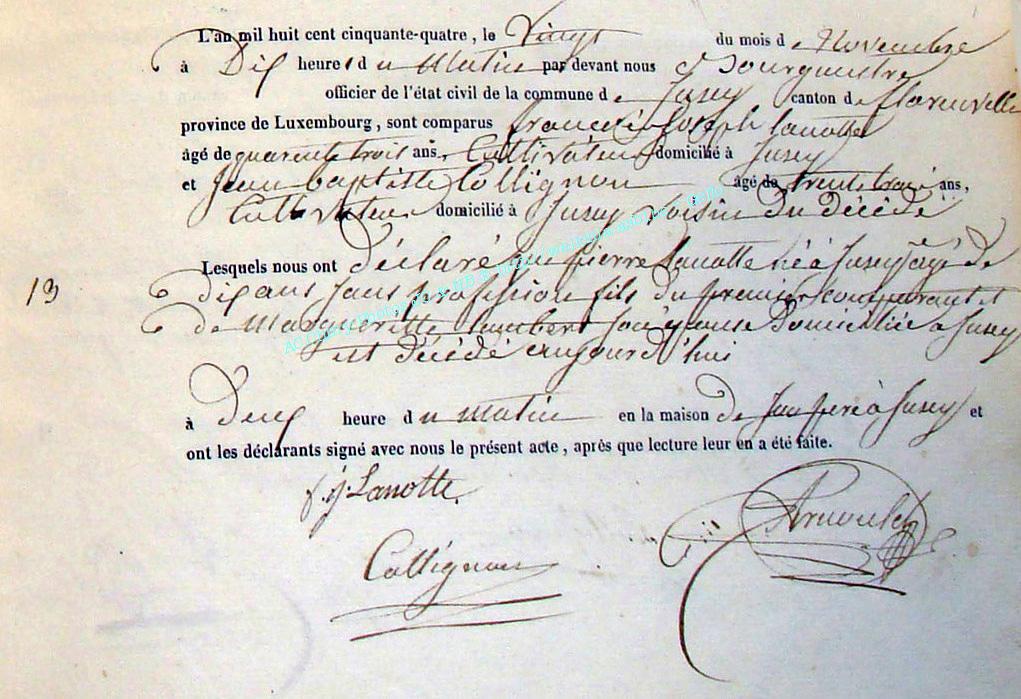 L'an mil huit cent cinquante-quatre, le Vingt du mois de Novembre
à Dix heures du Matin par devant nous Bourguestre
officier de l'état civil de la commune de Jusey canton de
province de Luxembourg, sont comparus françois joseph Lanotte
âgé de quarente trois ans, Cultivateur domicilié à Jusey
et Jean baptiste Collignon âgé de trente trois ans,
Cultivateur domicilié à Jusey voisin du décédé
Lesquels nous ont déclaré que pierre Lanotte né à Jusey agé de
13
dix ans sans profession fils du premier comparant et
de Margueritte Lambert son épouse Domiciliée à Jusey
est décédé aujourd'hui
à Deux heure du matin en la maison de son pere à Jusey et
ont les déclarants signé avec nous le présent acte, après que lecture leur en a été faite.
f. j. Lanotte
Arnould
Collignon